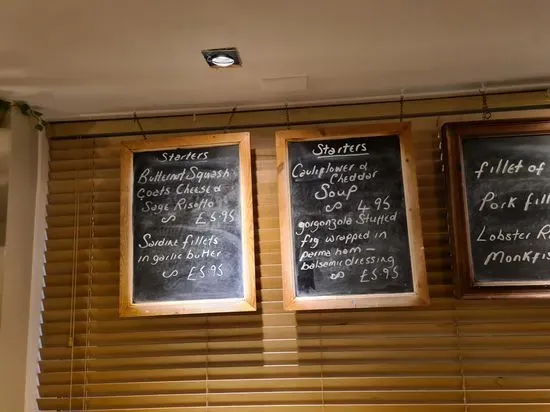 Starters
Butternut Squash
Goats Cheese &
Sage Risotto
£5.95
Sardine fillets
in garlic butter
£5.95
Starters
Cauliflower &
Cheddar
Soup
4.95
gorgonzola Stuffed
fig wrapped in
parma ham –
balsamic dressing
£5.95
fillet of
Pork fill
Lobster R
Monkfis